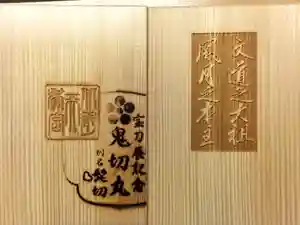 文道之大祖
風月之本主
宝刀展記念
鬼切丸
別名 髭切
北野
天
満宮